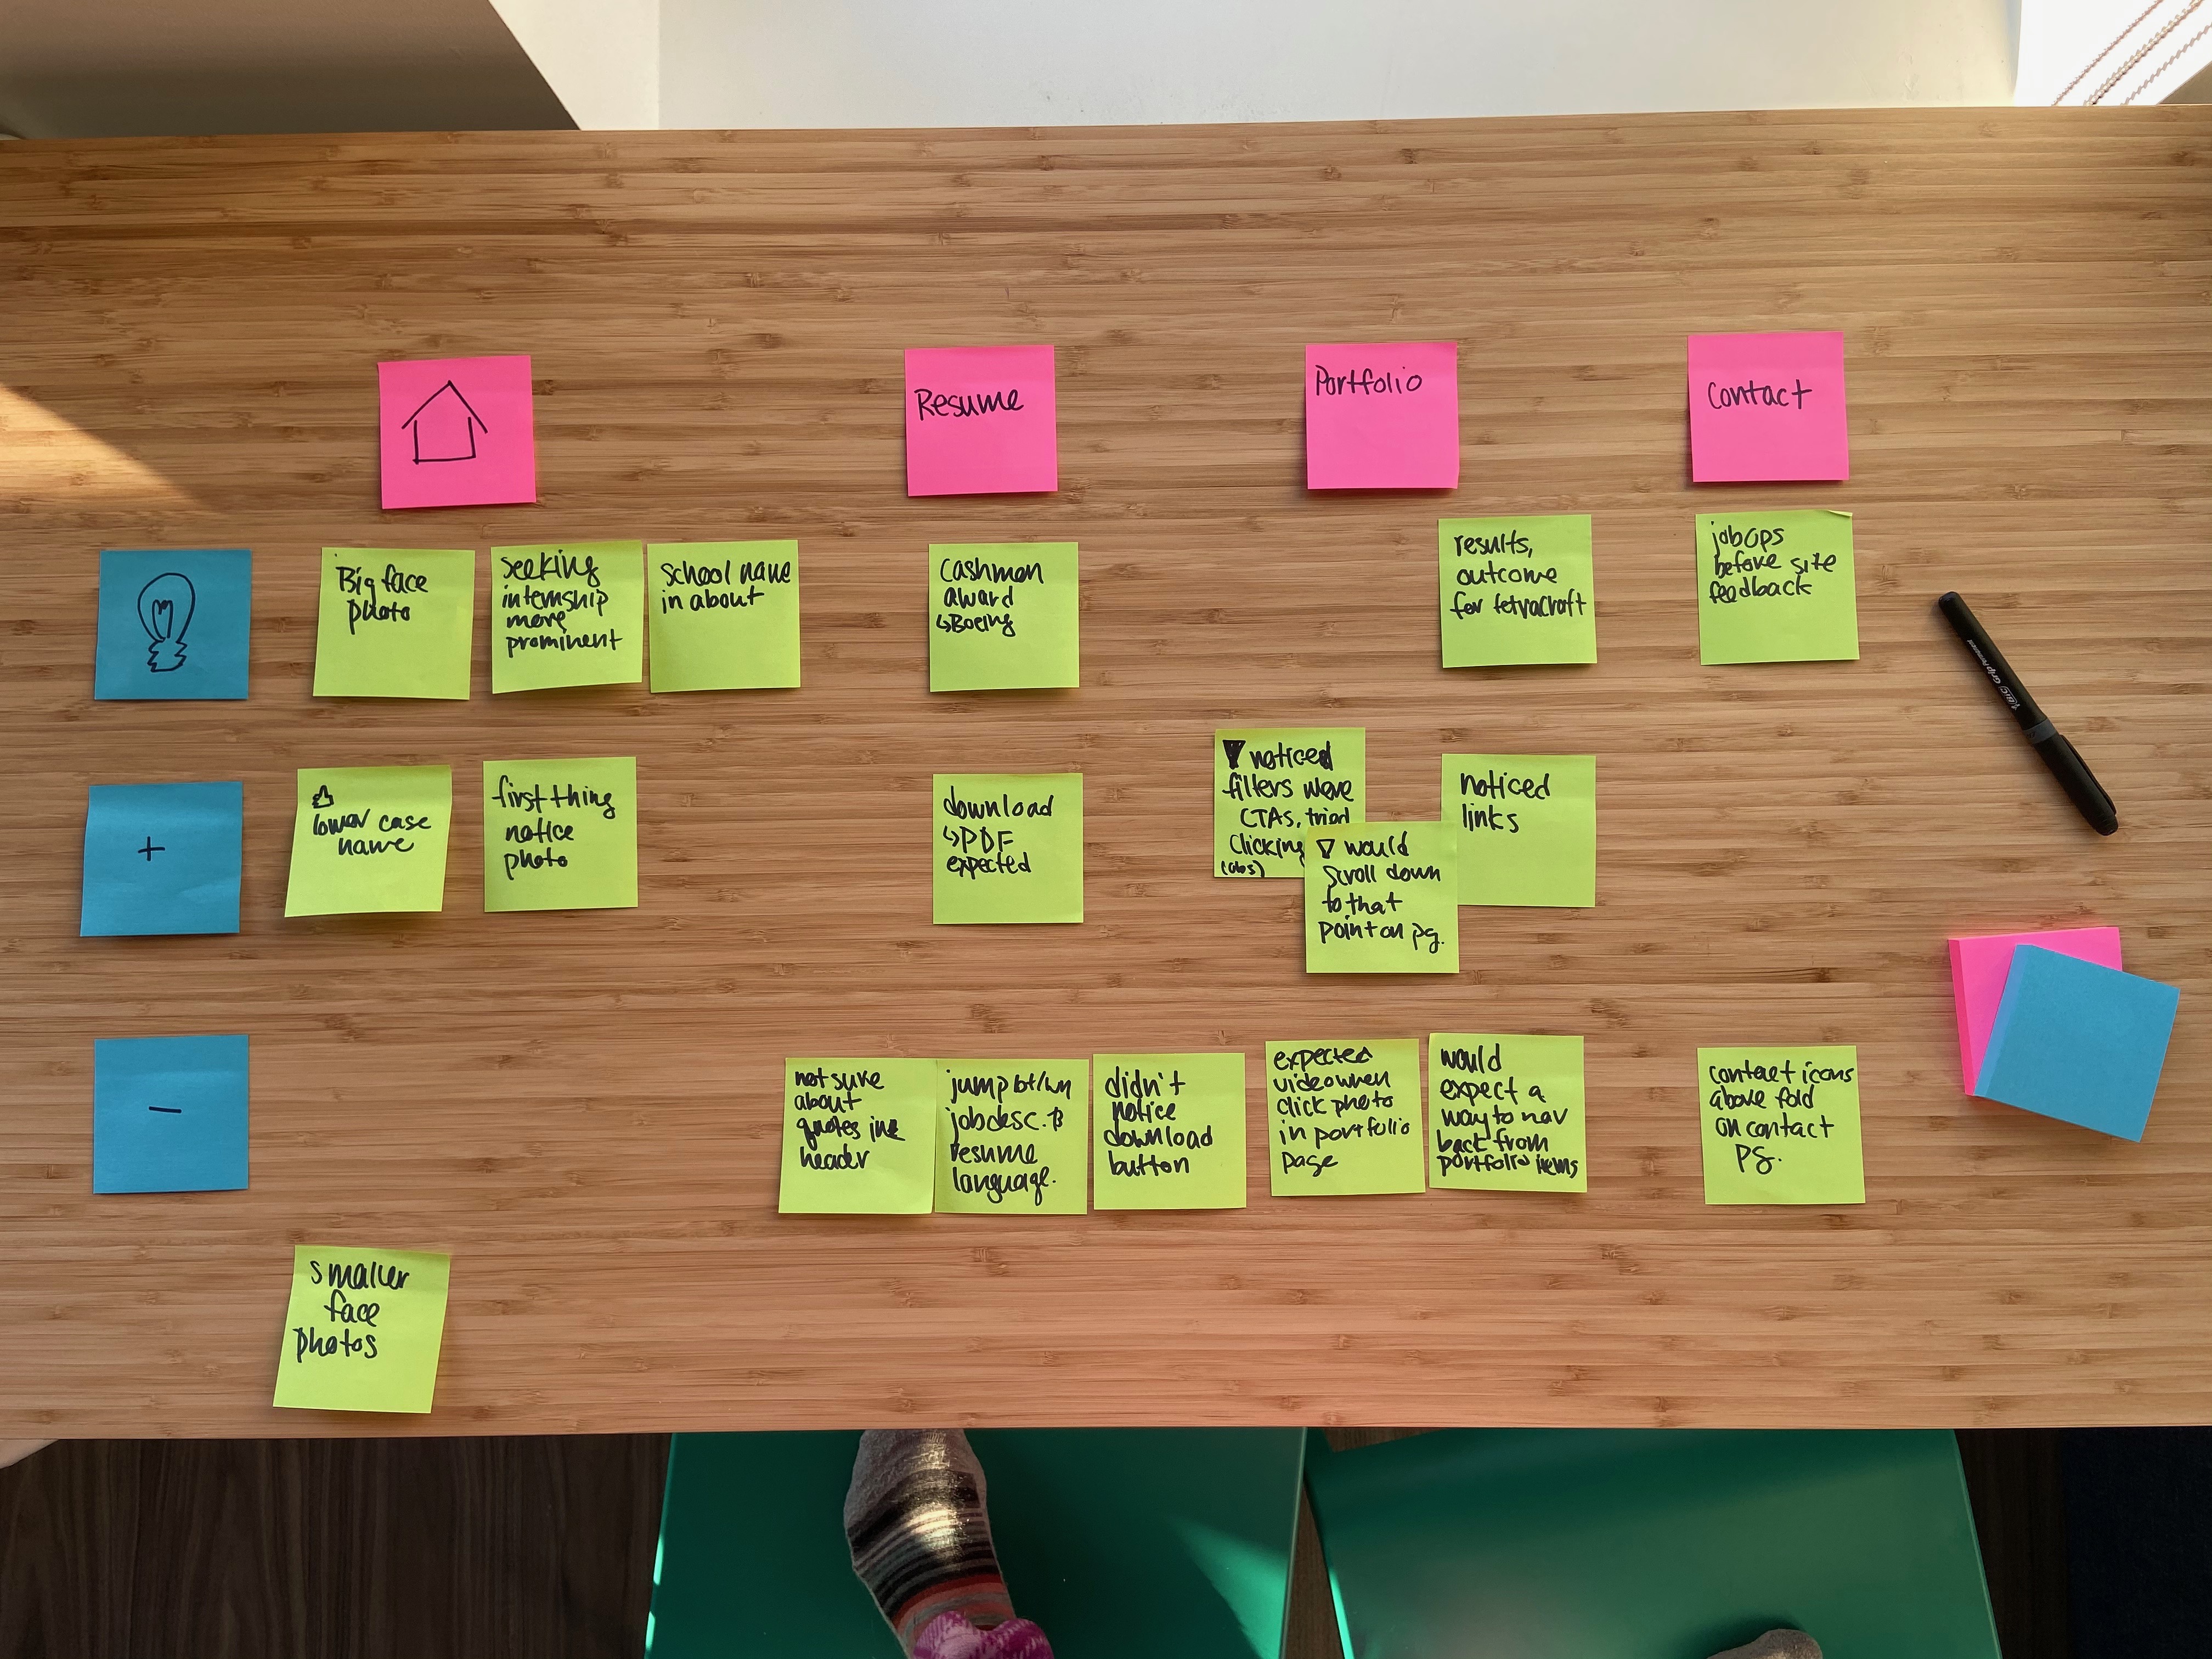 Resume
Portfolio
Contact
Big face
photo
seeking
internship
more
prominent
school name
in about
Cashman
award
↳Boeing
results,
outcome
for tetracraft
job ops
before site
feedback
+
lower case
name
first thing
notice
photo
download
↳PDF
expected
noticed
filters were
CTAs, tried
clicking
(obs)
would
scroll down
to that
point on pg.
noticed
links
-
not sure
about
quotes in
header
jump bt/wn
job desc. &
resume
language.
didn't
notice
download
button
expected
video when
click photo
in portfolio
page
would
expect a
way to nav
back from
portfolio items
contact icons
above fold
on contact
pg.
smaller
face
photos
BIC Grip Permanent